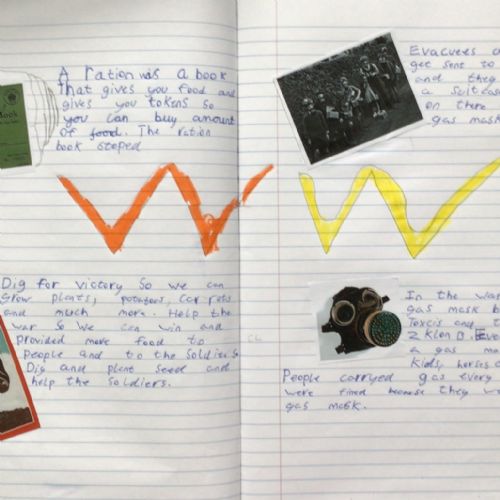 A ration was a book
That gives you food and
gives you tokens so
you can buy amount
of food. The ration
book stoped
W
Dig for victory So we can
Grow plants, potatoes, Carrots
and much more. Help the
war so we can win and
Provided more food to
people and to the soldiers
Dig and plant seed and
help the Soldiers.
Evacuees
get sent to
and they
a suitcase
on there
gas mask
W
In the
gas mask
Toxcis and
Zklon B.
a gas
Kids, horses
People carryed gas every
were fined because they
gas mask.